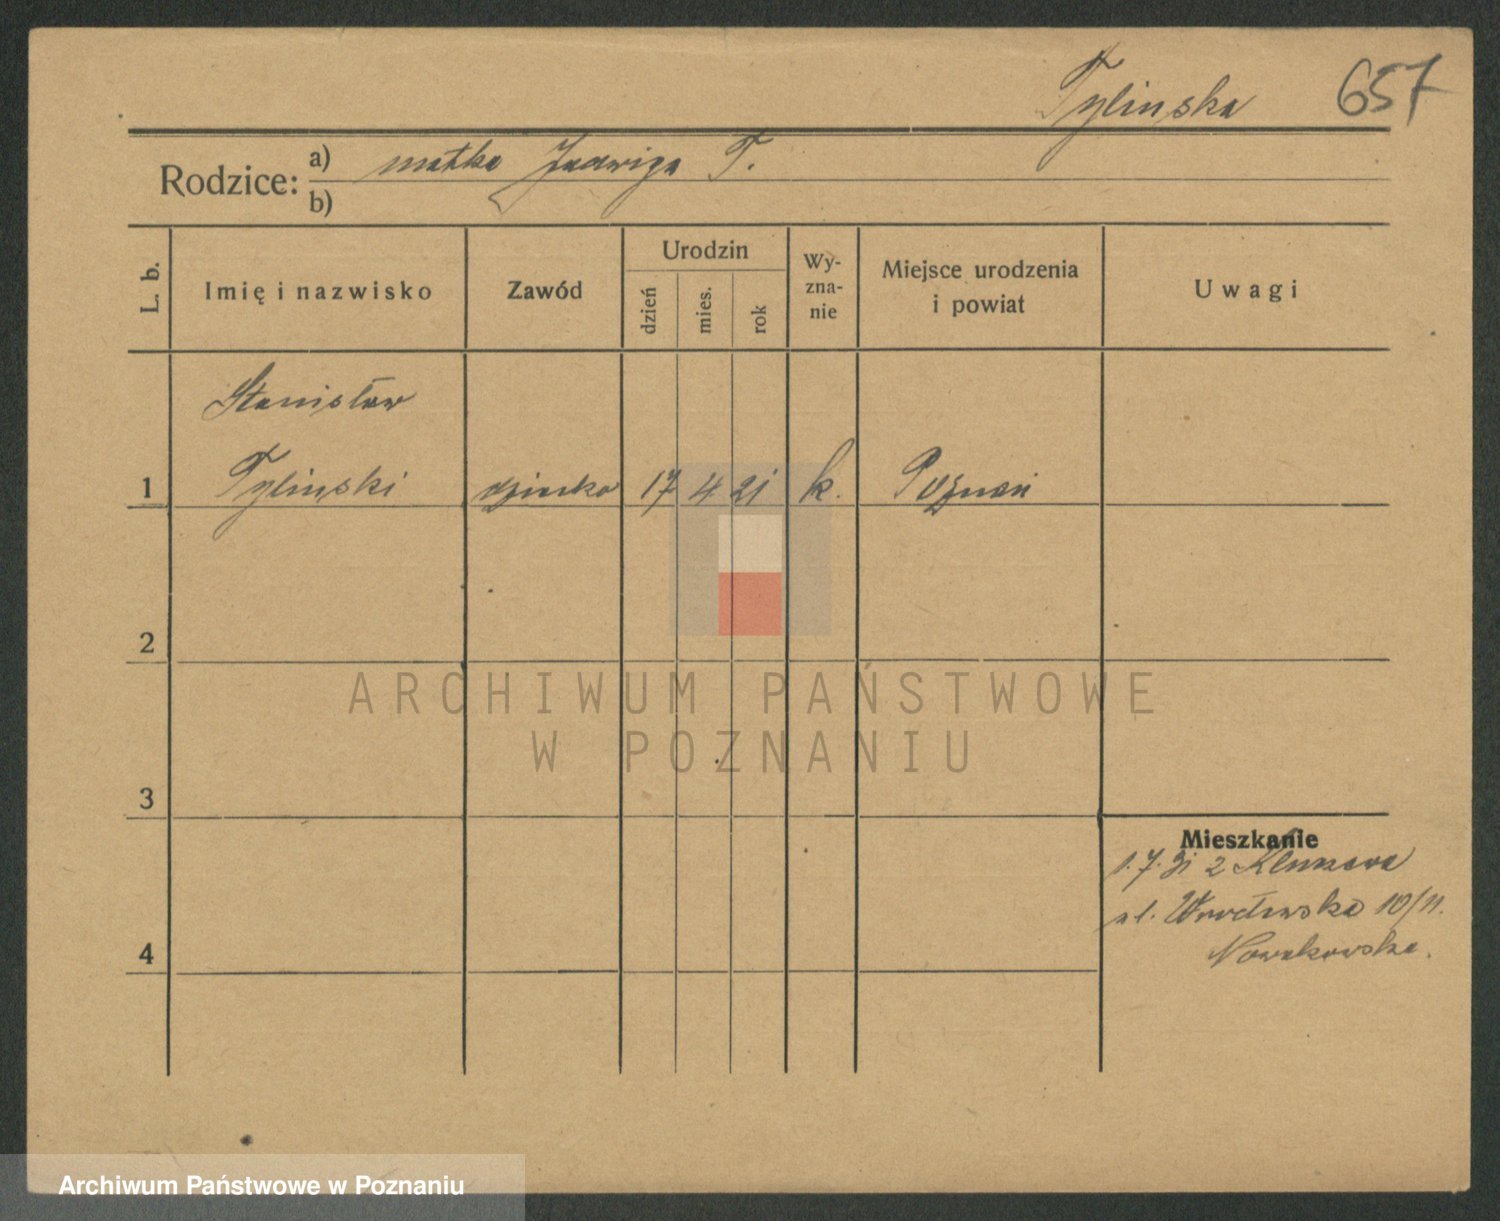 Tylinska 657
Rodzice: a) matka Jadwiga T.
b)
L. b.
Imię i nazwisko
Zawód
Urodzin
dzień
mies.
rok
Wy-
zna-
nie
Miejsce urodzenia
i powiat
Uwagi
Stanisław
1 Tylinski dziecko 17 4 21 k. Poznań
2
3
4
Mieszkanie
1.7.21 z
ul. Wrocławska 10/11.
Nowakowska.
ARCHIWUM PAŃSTWOWE
W POZNANIU
Archiwum Państwowe w Poznaniu